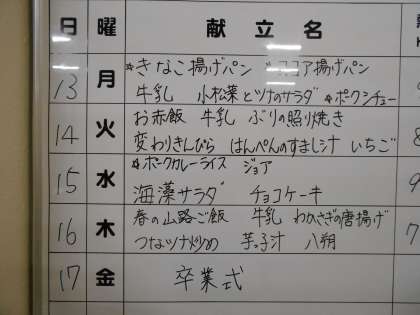 日 曜 献立名
13 月 *きなこ揚げパン ココア揚げパン
牛乳 小松菜とツナのサラダ *ポークシチュー
14 火 お赤飯 牛乳 ぶりの照り焼き
変わりきんぴら はんぺんのすまし汁 いちご
15 水 *ポークカレーライス ジョア
海藻サラダ チョコケーキ
16 木 春の山路ご飯 牛乳 わかさぎの唐揚げ
つなツナ炒め 芋っ子汁 八朔
17 金 卒業式